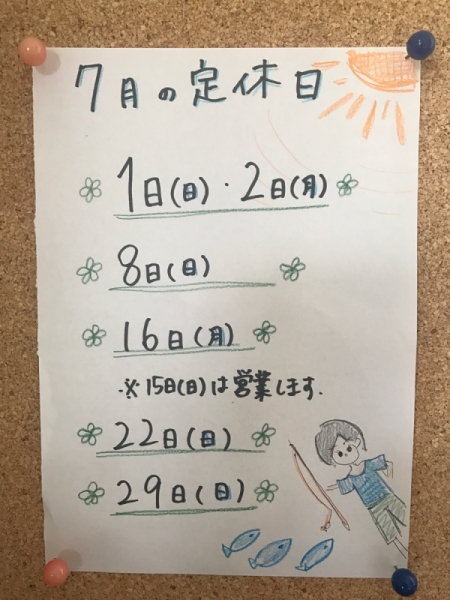 7月の定休日
1日(日)・2日(月)
8日(日)
16日(月)
・※15日(日)は営業します.
22日(日)
29日(日)